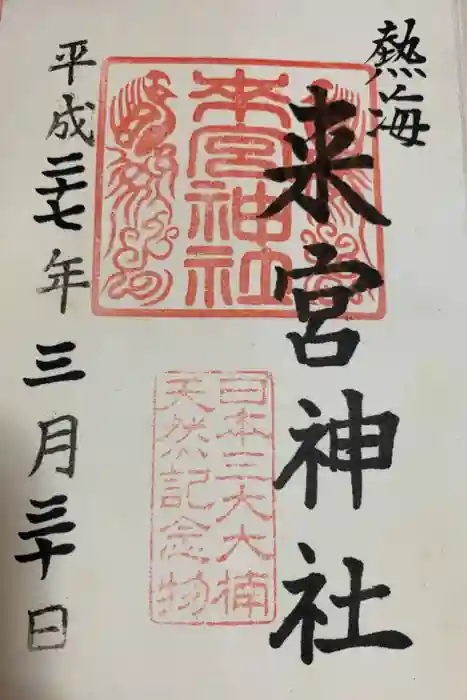 熱海
来宮神社
来宮神社
日本三大大楠
天然記念物
平成二十七年三月三十日